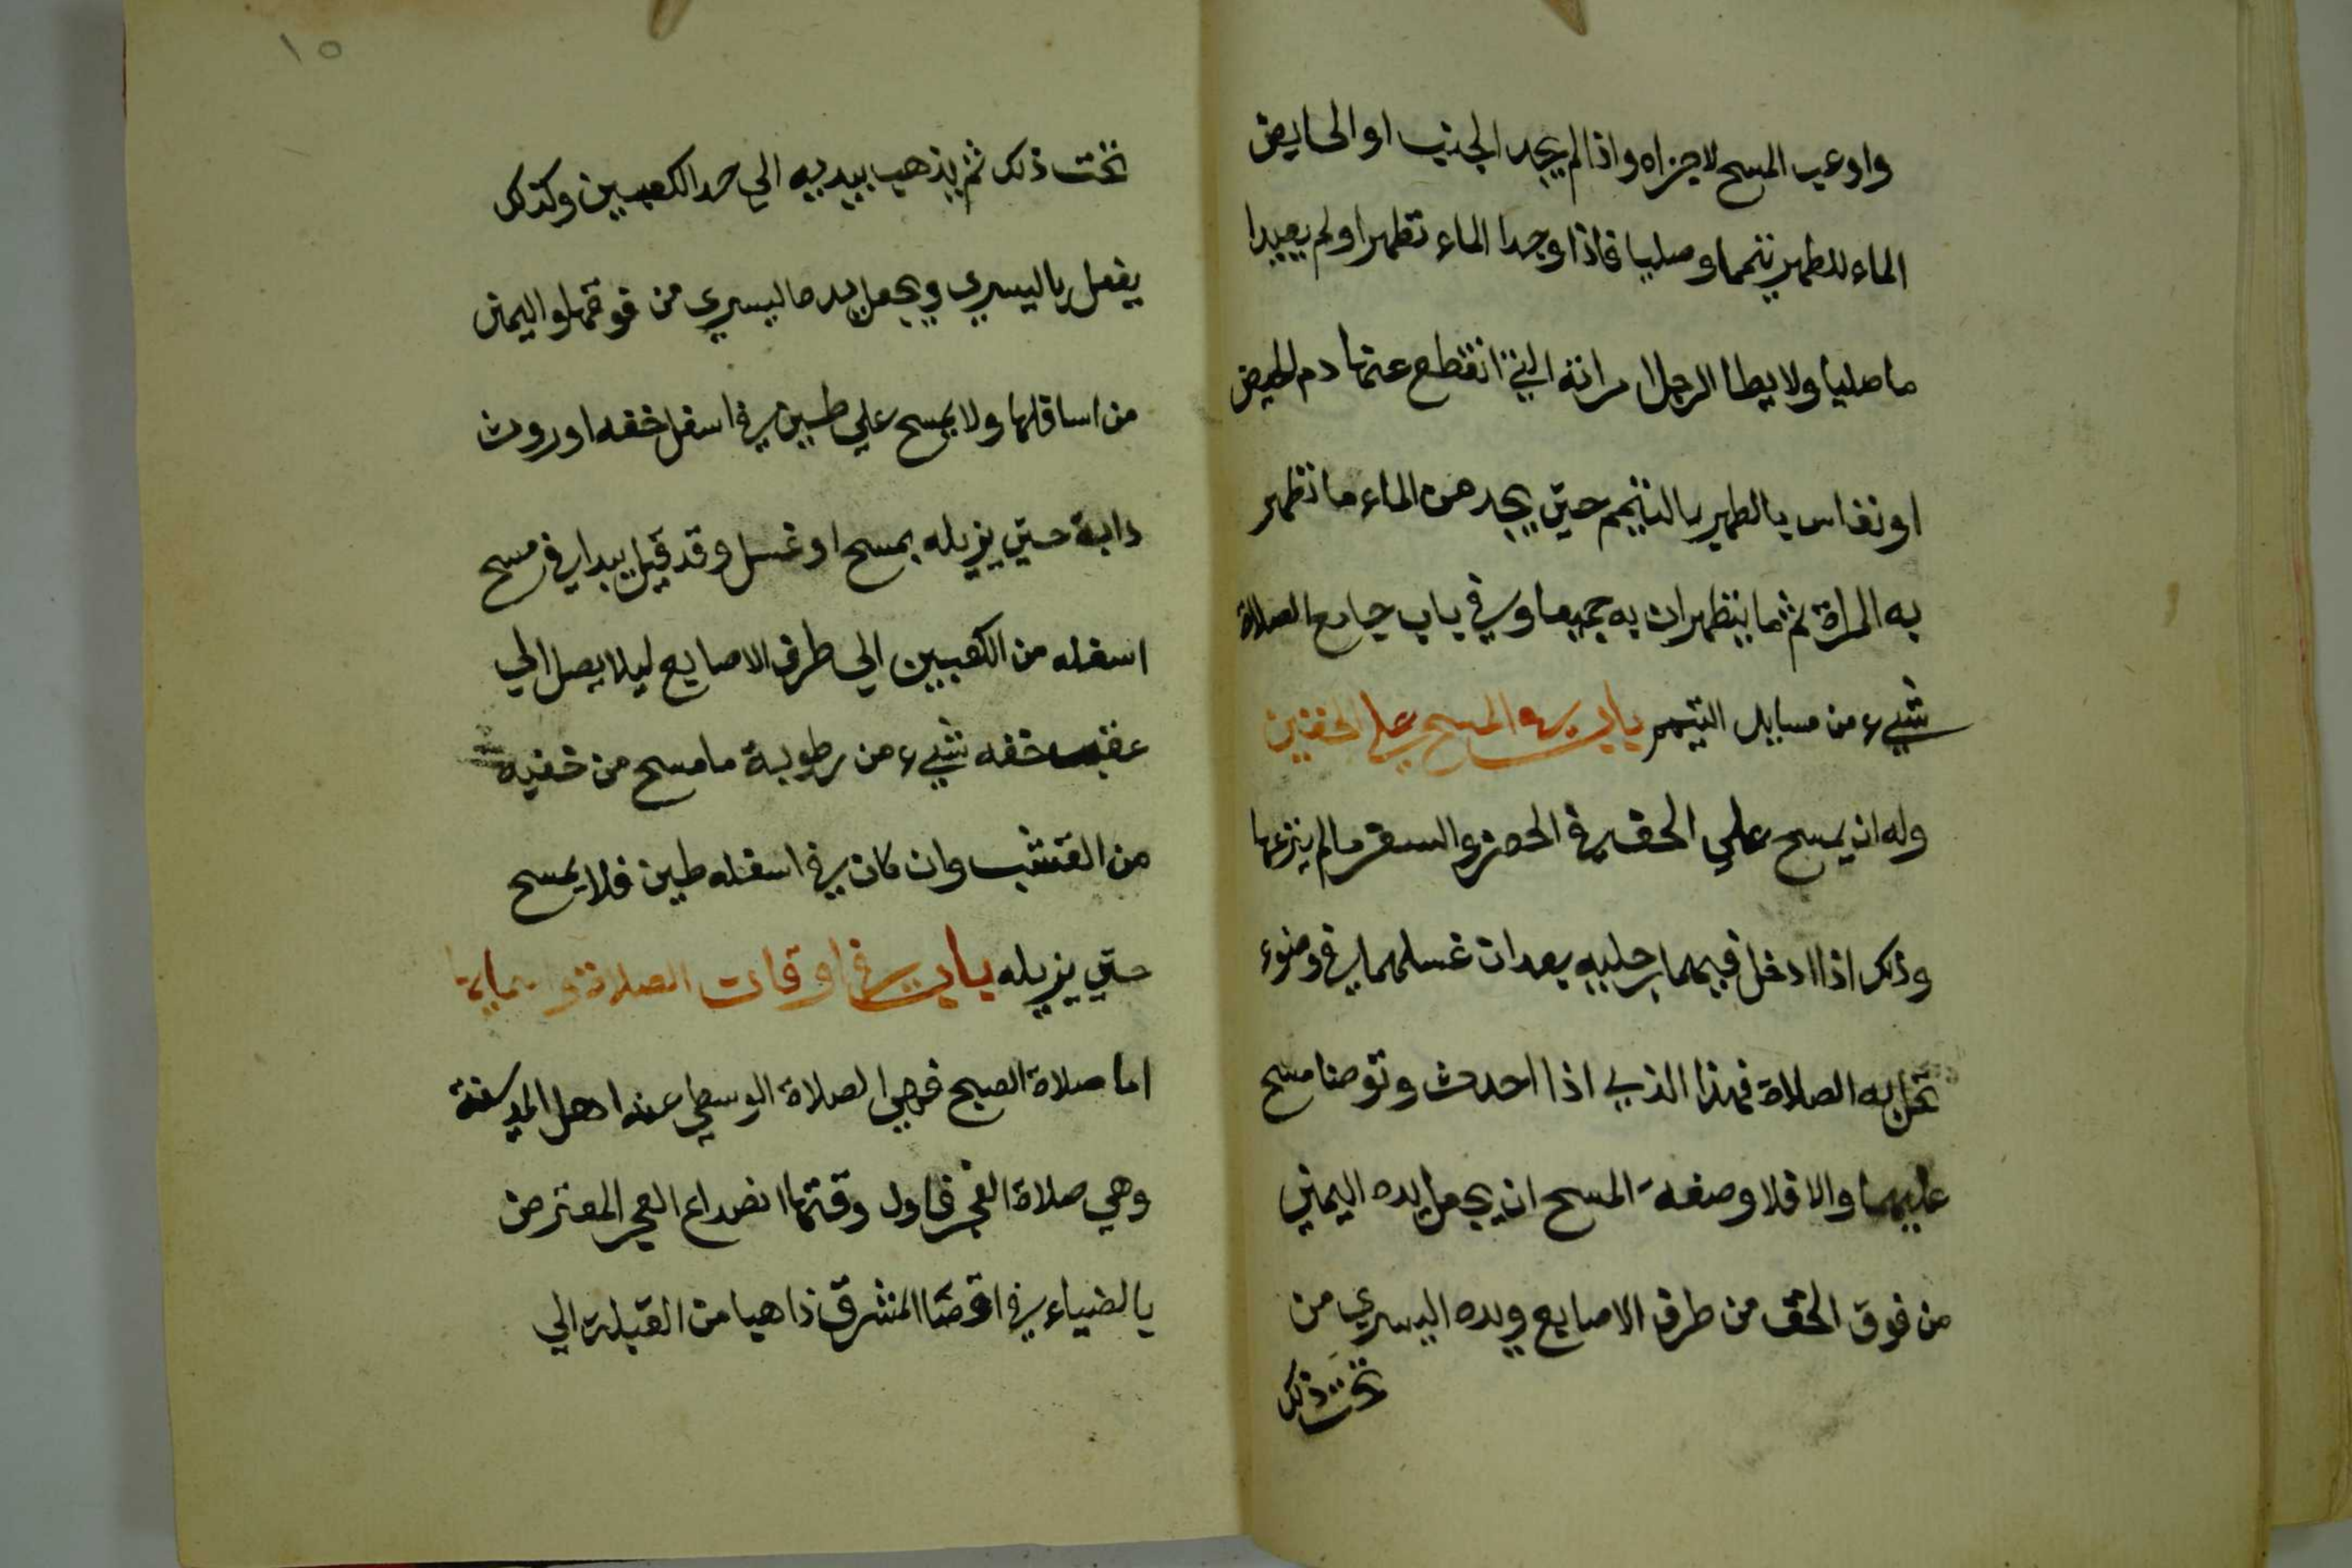 واوعب المسح لاجزاه واذا لم يجد الجنب او الحايض
الماء للطهر تيمما وصليا فاذا وجدا الماء تطهرا ولم يعيدا
ما صليا ولا يطا الرجل امراته التي انقطع عنها دم الحيض
او نفاس بالطهر بالتيمم حتي يجد من الماء ما تطهر
به المراة ثم ما يتطهران به جميعا وفي باب جامع الصلاة
شيء من مسايل التيمم باب في المسح علي الخفين
وله ان يمسح علي الخف في الحضر والسفر ما لم ينزعها
وذلك اذا ادخل فيهما رجليه بعد ان غسلهما في وضوء
تحل به الصلاة فهذا الذي اذا احدث وتوضا مسح
عليهما والا فلا وصفة المسح ان يجعل يده اليمني
من فوق الخف من طرف الاصابع ويده اليسري من
تحت ذلك
١٥
تحت ذلك ثم يذهب بيديه الي حد الكعبين وكذلك
يفعل باليسري ويجعل يده اليسري من فوقها واليمني
من اسافلها ولا يمسح علي طين في اسفل خفه او روث
دابة حتي يزيله بمسح او غسل وقد قيل يبدا في مسح
اسفله من الكعبين الي طرف الاصابع ليلا يصل الي
عقب خفه شيء من رطوبة ما مسح من خفيه
من القشب وان كان في اسفله طين فلا يمسح
حتي يزيله باب في اوقات الصلاة واسمايها
اما صلاة الصبح فهي الصلاة الوسطي عند اهل المدينة
وهي صلاة الفجر فاول وقتها انصداع الفجر المعترض
بالضياء في اقصا المشرق ذاهبا من القبلة الي